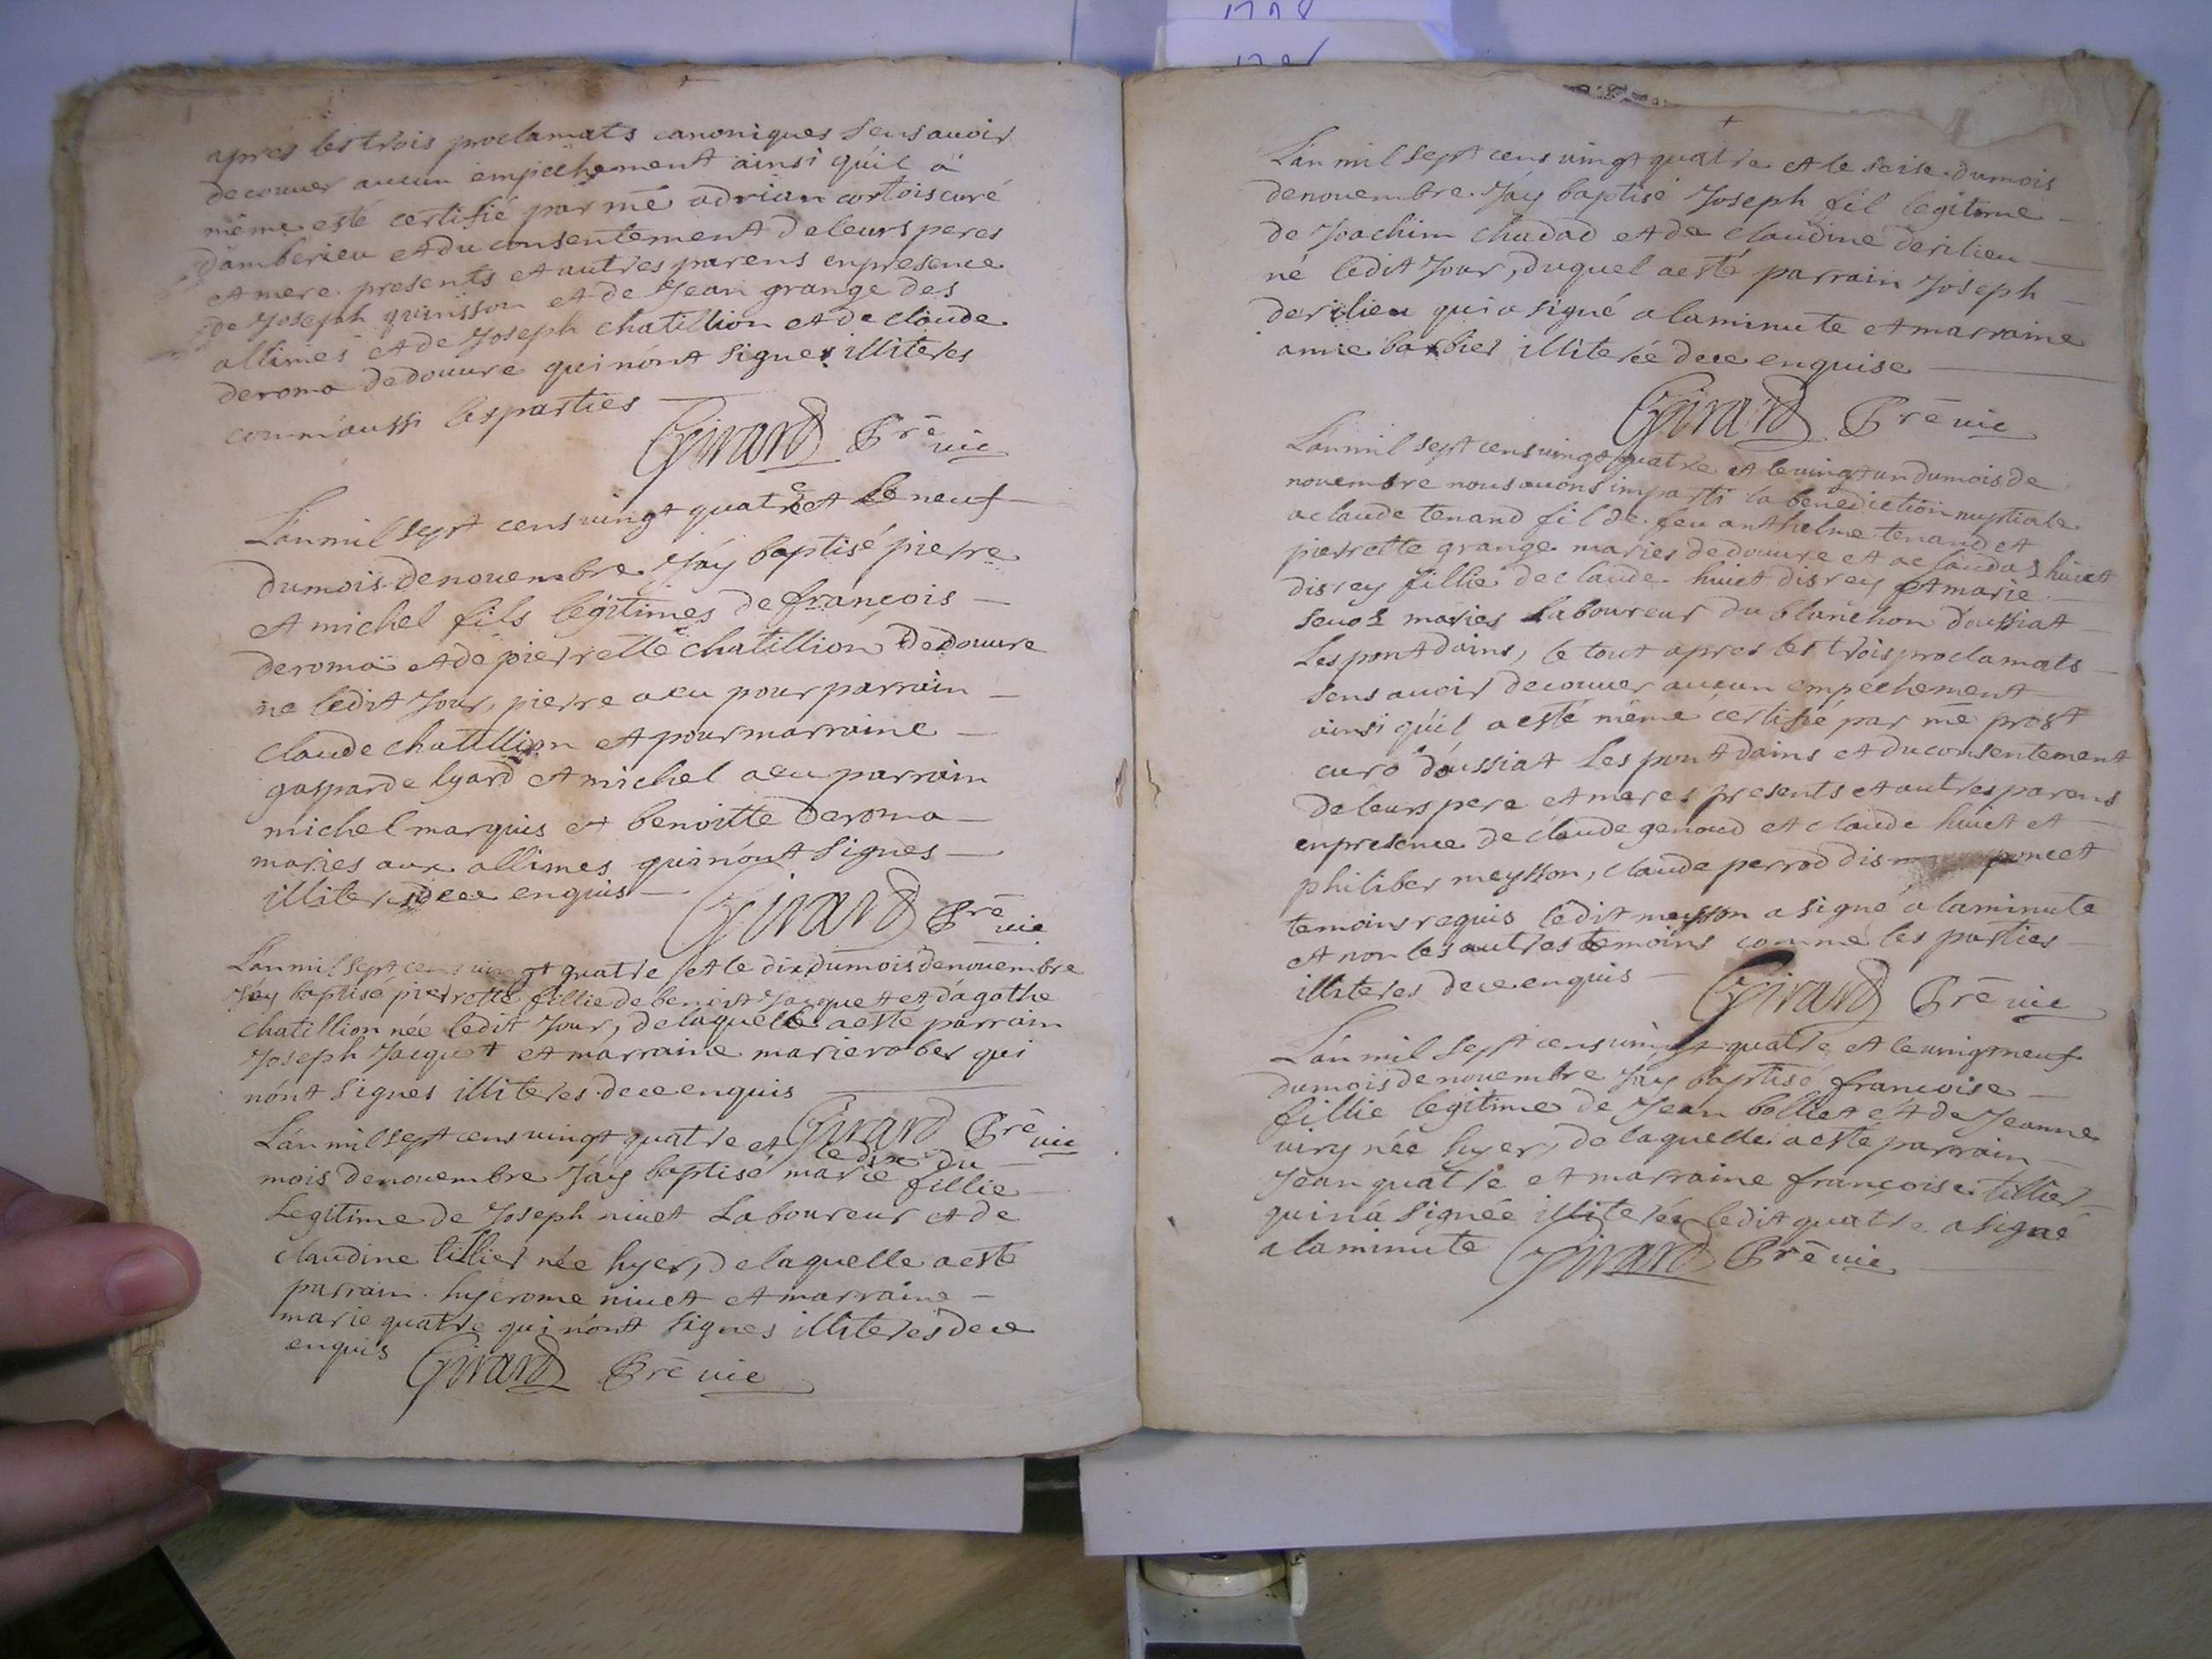 1708
apres les trois proclamats canoniques sens auoir
decouuer aucun empechement ainsi qúil à
même esté certifié par mé adrian cortois curé
dámberieu et du consentement de leurs peres
et mere presents et autres parens en presence
de Joseph grinisson et de Jean grange des
allimes et de Joseph chatillion et de claude
deroma de douure qui nónt signes illiteres
comm aussi les parties
Girard Prē vic
Lán mil sept cens uingt quatre et le neuf
du mois de nouembre Jáy baptisé pierre
et michel fils légitimes de françois
deroma et de pierrette chatillion de douure
ne ledit Jour, pierre a eu pour parrain
claude chatillion et pour marraine
gasparde lyard et michel a eu parrain
michel marquis et benoitte deroma
maries aux allimes qui nónt signes
illiteres de ce enquis
Girard Prē vic
Lán mil sept cens uingt quatre et le dix du mois de nouembre
Jáy baptisé pierrette fillie de benoist Jacquet et dágathe
chatillion née ledit Jour, de laquelle a esté parrain
Joseph Jacquet et marraine marie rober qui
nónt signes illiteres de ce enquis
Girard Prē vic
Lán mil sept cens uingt quatre et le dix du
mois de nouembre Jáy baptisé marie fillie
Legitime de Joseph niuet Laboureur et de
claudine tillier née hyer, de laquelle a esté
parrain hyerome niuet et marraine
marie quatre qui nónt signes illiteres de ce
enquis Girard Prē vic
Lán mil sept cens uingt quatre et le seise du mois
de nouembre Jáy baptisé Joseph fil legitime
de Joachim chadad et de claudine derilieu
né ledit Jour, duquel a esté parrain Joseph
derilieu qui a signé a la minute et marraine
anne barbier illiterée de ce enquise
Girard Prē vic
Lán mil sept cens uingt quatre et le uingt un du mois de
nouembre nous auons imparti la benediction nuptiale
a claude tenand fil de feu anthelme tenand et
pierrette grange maries de douure et a claudaz huiet
disrey fillie de claude huiet disrey et marie
seuoz maries Laboureur du blanchon doussiat
Les pont dains, le tout apres les trois proclamats
sens auoir decouuer aucun empechement
ainsi qúil a esté même certifié par mé prost
curé dóussiat Les pont dains et du consentement
de leurs pere et meres presents et autres parens
en presence de claude genoud et claude huiet et
philiber meysson, claude perrod dis poncet
temoins requis ledit meysson a signé a la minute
et non les autres temoins comme les parties
illiteres de ce enquis
Girard Prē vic
Lán mil sept cens uingt quatre et le uingt neuf
du mois de nouembre Jáy baptisé françoise
fillie legitime de Jean bolliet et de Jeanne
uiry née hyer, de laquelle a esté parrain
Jean quatre et marraine françoise tillier
qui ná signée illiterée ledit quatre a signé
a la minute Girard Prē vic